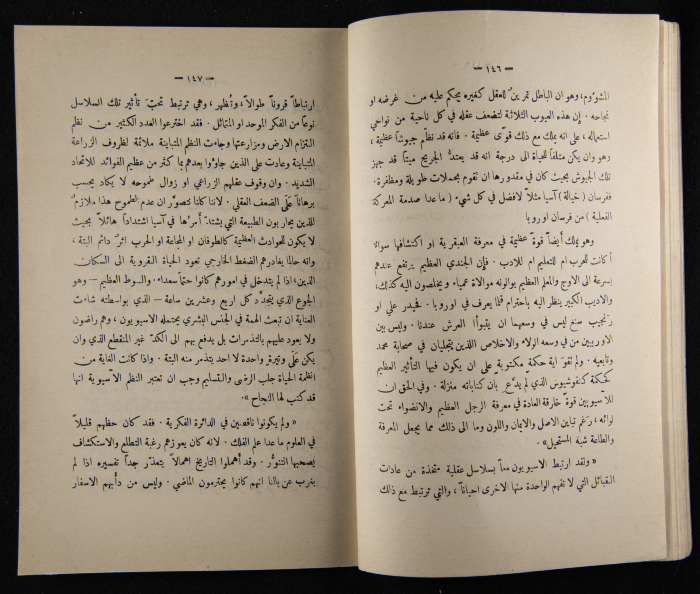 — ١٤٦ —
المشؤوم، وهو ان الباطل تمرينٌ للعقل كغيره يحكم عليه من غرضه او
نجاحه . إن هذه العيوب الثلاثة لتضعف عقله في كل ناحية من نواحي
استعماله ، على انه يملك مع ذلك قوًى عظيمة . فانه قد نظّم جيوشاً عظيمة ،
وهو وان يكن متلفاً للحياة الى درجة انه قد يعتدُّ الجريح ميتاً قد جهز
تلك الجيوش بحيث كان في مقدورها ان تقوم بحملات طويلة ومظفرة .
ففرسان ( خيالة ) آسيا مثلاً لافضل في كل شيء ( ما عدا صدمة المعركة
الفعلية ) من فرسان اوروبا
وهو يملك أيضاً قوة عظيمة في معرفة العبقرية او اكتشافها سواءً
أكانت للحرب ام للتعليم ام للادب . فإن الجندي العظيم يرتفع عندهم
بسرعة الى الاوج والمعلم العظيم يوالونه موالاة عمياء ويخلصون اليه كذلك،
والاديب الكبير ينظر اليه باحترام قلما يعرف في اوروبا . فحيدر علي او
رنجيب سنغ ليس في وسعهما ان يتبوأا العرش عندنا . وليس بين
الاوربيين من في وسعه الولاء والاخلاص اللذين يتجليان في صحابة محمد
وتابعيه . ولم تقوَ اية حكمة مكتوبة على ان يكون فيها التأثير العظيم
كحكمة كنفوشيوس الذي لم يدَّع بان كتاباته منزلة . وفي الحق ان
للآسيويين قوة خارقة العادة في معرفة الرجل العظيم والانضواء تحت
لوائه ، رغم تباين الاصل والايمان واللون وما الى ذلك مما يجعل المعرفة
والطاعة شبه المستحيل» .
« ولقد ارتبط الاسيويون معاً بسلاسل عقلية متخذة من عادات
القبائل التي لا تفهم الواحدة منها الاخرى احياناً ، والتي ترتبط مع ذلك
— ١٤٧ —
ارتباطاً قروناً طوالاً ، وتُظهر ، وهي ترتبط تحت تأثير تلك السلاسل
نوعاً من الفكر الموحد او المتماثل . فقد اخترعوا العدد الكثير من نظم
التزام الارض ومزارعتها وجاءت النظم المتباينة ملائمة لظروف الزراعة
المتباينة وعادت على الذين جاؤوا بعدهم بما كثر من عظيم الفوائد للاتحاد
الشديد . وان وقوف عقلهم الزراعي او زوال طموحه لا يكاد يحسب
برهاناً عَلَى الضعف العقلي . لاننا كلنا نتصوَّر ان عدم الطموح هذا ملازمٌ
للذين يحاربون الطبيعة التي يشتدّ أمرُها في آسيا اشتداداً هائلاً بحيث
لا يكون للحوادث العظيمة كالطوفان او المجاعة او الحرب اثرٌ دائم البتة ،
وانه حالما يغادرهم الضغط الخارجي تعود الحياة القروية الى السكان
الذين، اذا لم يتدخل في امورهم كانوا حتماً سعداء. والسوط العظيم – وهو
الجوع الذي يتجدَّد كل اربع وعشرين ساعة – الذي بواسطته شاءت
العناية ان تبعث الهمة في الجنس البشري يحتمله الاسيويون ، وهم راضون
ولا يعود عليهم بالتذمرات بل يدفع بهم الى الكدّ غير المنقطع الذي وان
يكن عَلَى وتيرة واحدة لا احد يتذمر منه البتة . واذا كانت الغاية من
انظمة الحياة جلب الرضى والتسليم وجب ان تعتبر النظم الآسيوية انها
قد كتب لها النجاح » .
« ولم يكونوا ناقصين في الدائرة الفكرية . فقد كان حظهم قليلاً
في العلوم ما عدا علم الفلك . لانه كان يعوزهم رغبة التطلع والاستكشاف
يصحبها التنوُّر . وقد أهملوا التاريخ اهمالاً يتعذَّر جداً تفسيره اذا لم
يغرب عن بالنا انهم كانوا يحترمون الماضي . وليس من دأبهم الاسفار